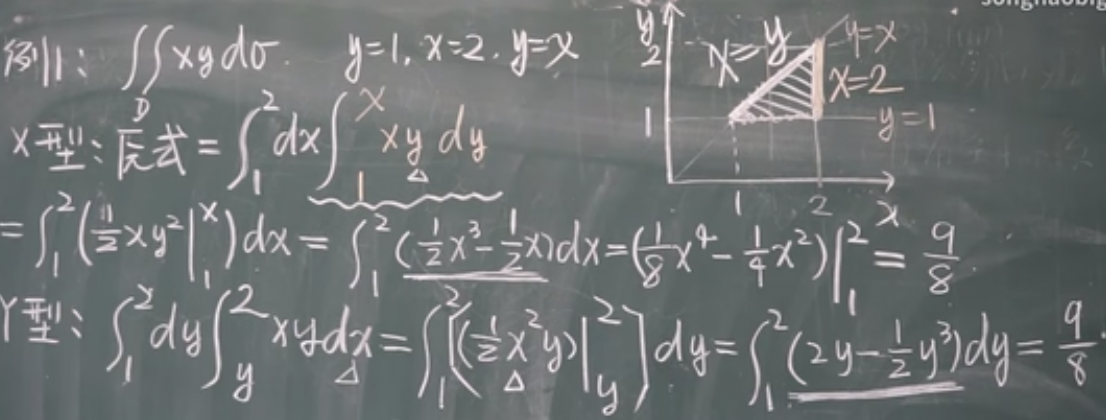 例1: ∬_D xy dσ. y=1, x=2, y=x
X型: 原式 = ∫_1^2 dx ∫_1^x xy dy
= ∫_1^2 (1/2 xy² |_1^x) dx = ∫_1^2 (1/2 x³ - 1/2 x) dx = (1/8 x⁴ - 1/4 x²) |_1^2 = 9/8
Y型: ∫_1^2 dy ∫_y^2 xy dx = ∫_1^2 [(1/2 x² y) |_y^2] dy = ∫_1^2 (2y - 1/2 y³) dy = 9/8
y
2
x=y
y=x
x=2
1
y=1
1
2
x